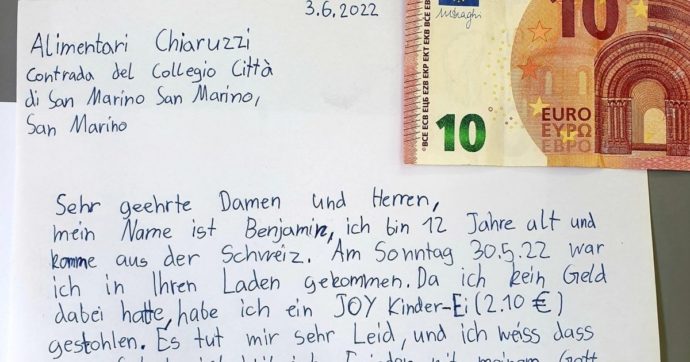 3.6.2022
Alimentari Chiaruzzi
Contrada del Collegio Città
di San Marino San Marino,
San Marino
Sehr geehrte Damen und Herren,
mein Name ist Benjamin, ich bin 12 Jahre alt und
komme aus der Schweiz. Am Sonntag 30.5.22 war
ich in Ihren Laden gekommen. Da ich kein Geld
dabei hatte, habe ich ein JOY Kinder-Ei (2.10 €)
gestohlen. Es tut mir sehr Leid, und ich weiss dass
10
10
EURO
ΕΥΡΩ
ЕВРО
BCE ECB ЕЦБ EZB EKP EKT EKB BĊE EBC